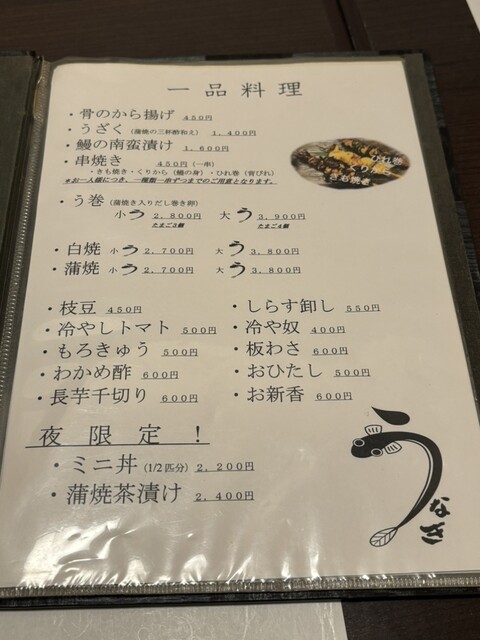 一品料理
・骨のから揚げ 450円
・うざく（蒲焼の三杯酢和え） 1,400円
・鰻の南蛮漬け 1,600円
・串焼き 450円（一串）
・きも焼き・くりから（鰻の身）・ひれ巻（背びれ）
※お一人様につき、一種類一串ずつまでのご用意となります。
ひれ巻
くりから
きも焼き
・う巻（蒲焼き入りだし巻き卵）
小う 2,800円 大う 3,900円
たまご3個 たまご4個
・白焼 小う 2,700円 大う 3,800円
・蒲焼 小う 2,700円 大う 3,800円
・枝豆 450円
・冷やしトマト 500円
・もろきゅう 500円
・わかめ酢 600円
・長芋千切り 600円
・しらす卸し 550円
・冷や奴 400円
・板わさ 600円
・おひたし 500円
・お新香 600円
夜限定！
・ミニ丼（1/2匹分） 2,200円
・蒲焼茶漬け 2,400円
うなぎ